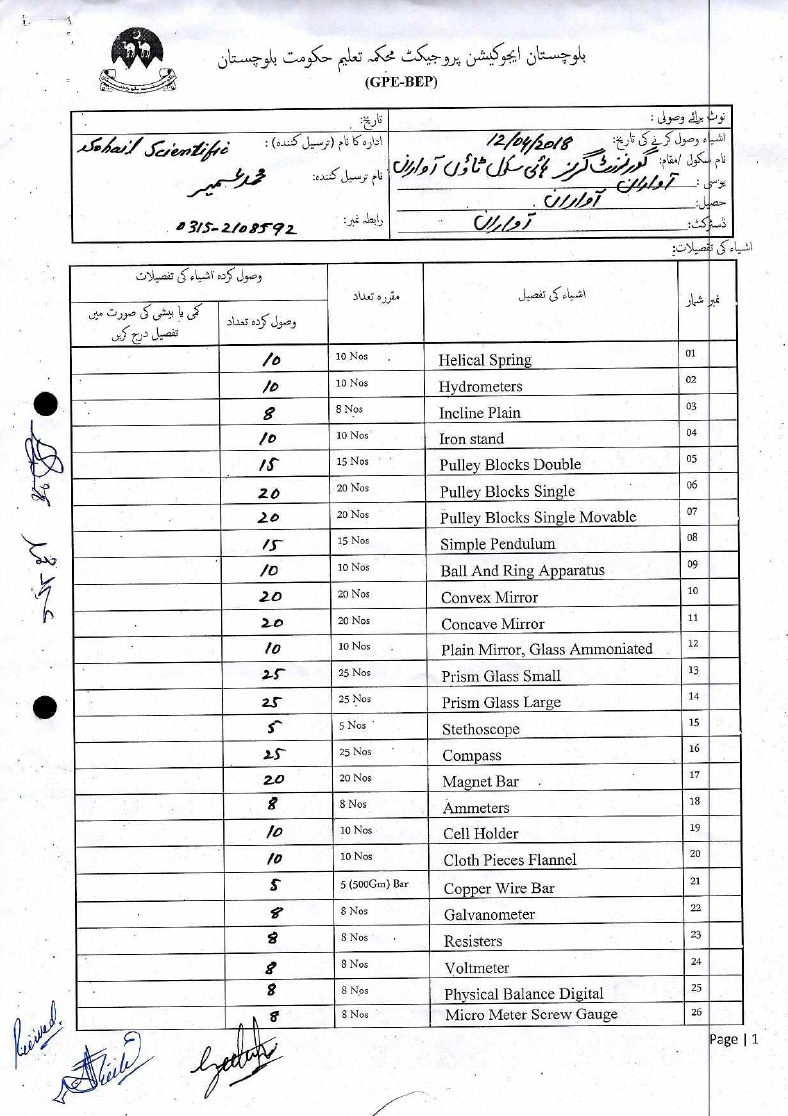 بلوچستان ایجوکیشن پروجیکٹ محکمہ تعلیم حکومت بلوچستان
(GPE-BEP)
نوٹ برائے وصولی :
اشیاء وصول کرنے کی تاریخ: 12/04/2018
نام سکول /مقام: گورنمنٹ گرلز ہائی سکول ٹاؤن آواران
یوسی : آواران
تحصیل: آواران
ڈسٹرکٹ: آواران
تاریخ:
ادارہ کا نام (ترسیل کنندہ) : Sohail Scientific
نام ترسیل کنندہ: محمد عمیر
رابطہ نمبر: 0315-2108592
اشیاء کی تفصیلات:
نمبر شمار اشیاء کی تفصیل مقررہ تعداد وصول کردہ اشیاء کی تفصیلات
وصول کردہ تعداد کمی یا بیشی کی صورت میں تفصیل درج کریں
01 Helical Spring 10 Nos 10
02 Hydrometers 10 Nos 10
03 Incline Plain 8 Nos 8
04 Iron stand 10 Nos 10
05 Pulley Blocks Double 15 Nos 15
06 Pulley Blocks Single 20 Nos 20
07 Pulley Blocks Single Movable 20 Nos 20
08 Simple Pendulum 15 Nos 15
09 Ball And Ring Apparatus 10 Nos 10
10 Convex Mirror 20 Nos 20
11 Concave Mirror 20 Nos 20
12 Plain Mirror, Glass Ammoniated 10 Nos 10
13 Prism Glass Small 25 Nos 25
14 Prism Glass Large 25 Nos 25
15 Stethoscope 5 Nos 5
16 Compass 25 Nos 25
17 Magnet Bar 20 Nos 20
18 Ammeters 8 Nos 8
19 Cell Holder 10 Nos 10
20 Cloth Pieces Flannel 10 Nos 10
21 Copper Wire Bar 5 (500Gm) Bar 5
22 Galvanometer 8 Nos 8
23 Resisters 8 Nos 8
24 Voltmeter 8 Nos 8
25 Physical Balance Digital 8 Nos 8
26 Micro Meter Screw Gauge 8 Nos 8
Received.
Page | 1